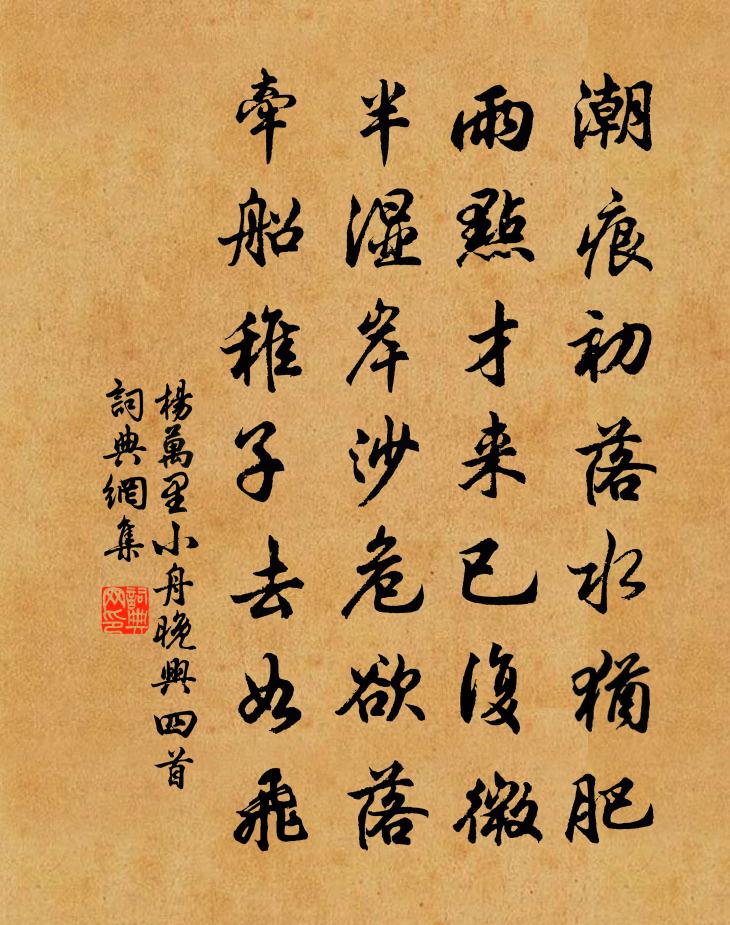 潮痕初落水猶肥
雨點才来已復微
半濕岸沙危欲落
牽船稚子去如飛
楊萬里小舟晚興四首
詞典網集
詞典
网印